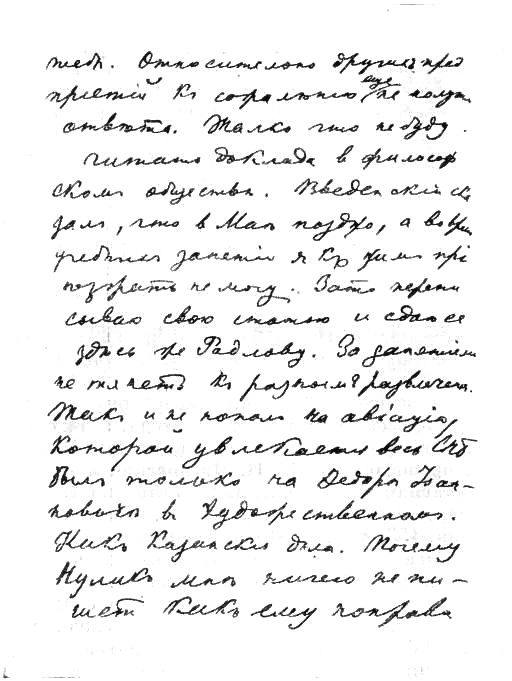 тебѣ. Относительно другихъ пред
пріятій къ сожалѣнію еще не получ.
отвѣта. Жалко что не буду
читать доклада в философ
скомъ обществѣ. Введенскій ска
залъ, что в Маѣ поздно, а во врем
учебныхъ занятій я къ нимъ прі
не могу. Зато перепи
сываю свою статью и сдаю ее
здѣсь же Радлову. За занятіями
не тянетъ къ разнымъ развлечен.
Такъ и не попалъ на авіацію,
которой увлекается весь Спб
былъ только на Федорѣ Іоан-
новичѣ в Художественномъ.
Какъ Казанскія дѣла. Почему
Нуликъ мнѣ ничего не пи-
шетъ Какъ ему понрави